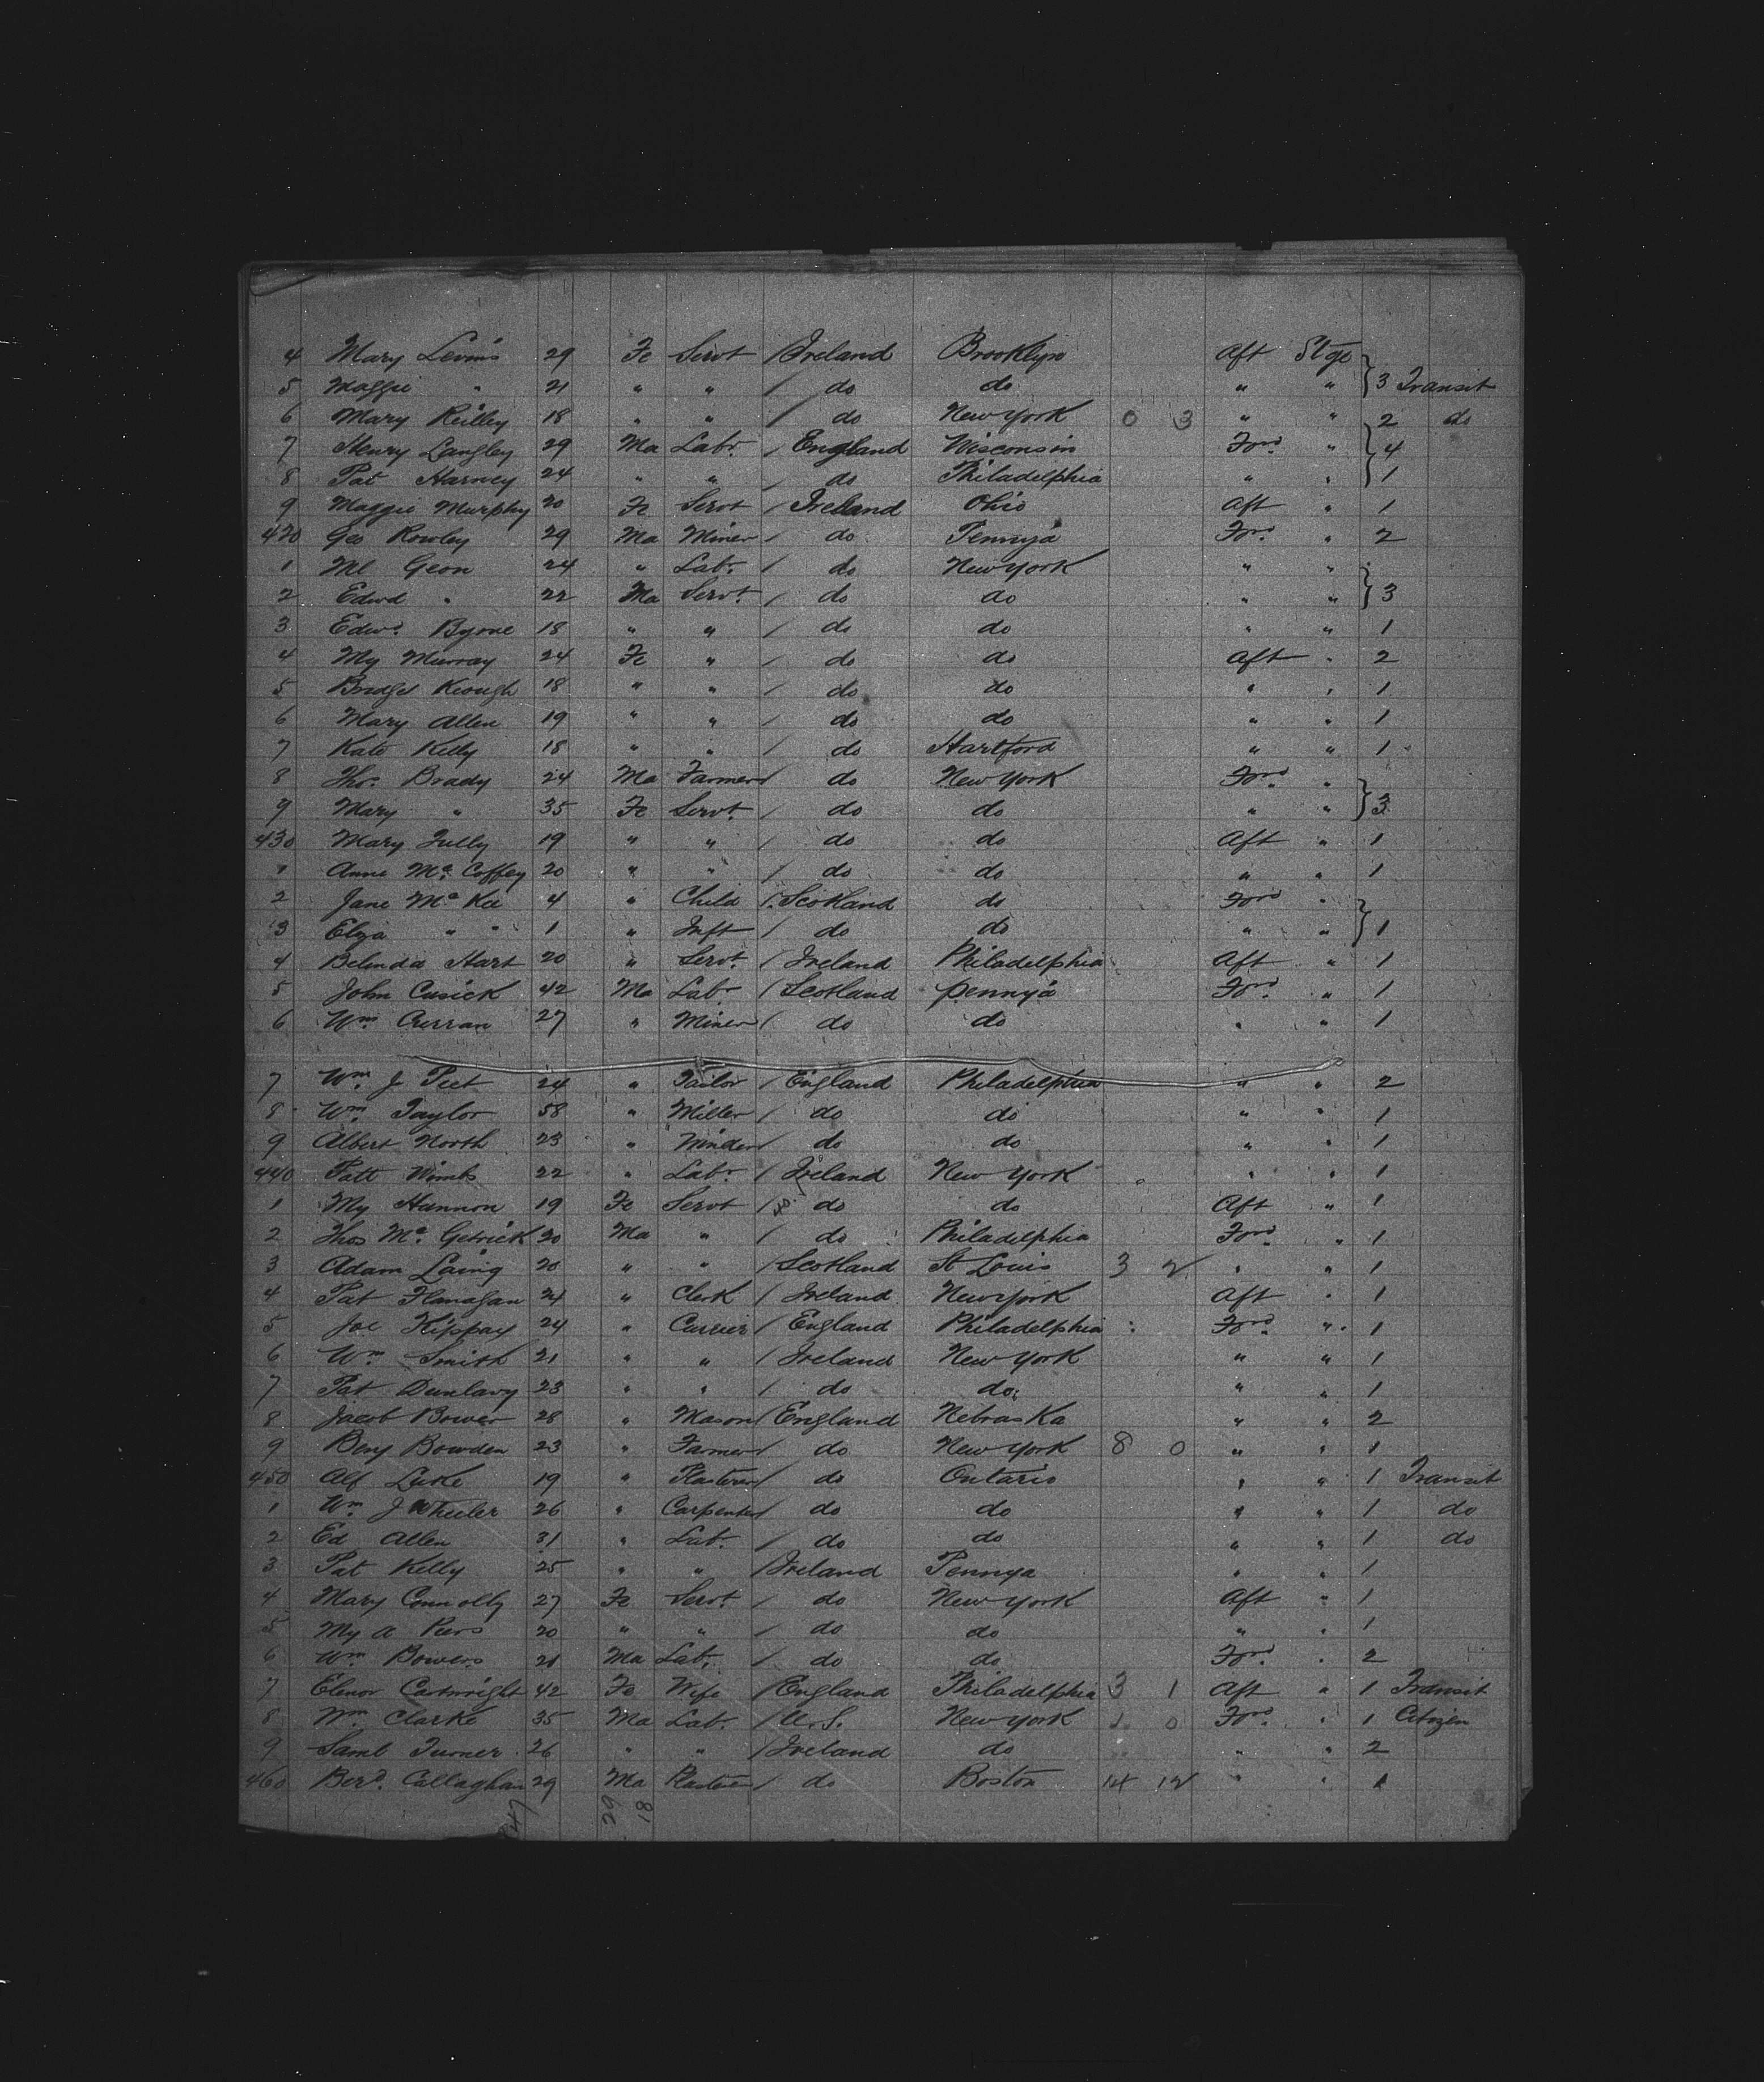 4 Mary Levins 29 Fe Servt / Ireland Brooklyn Aft Stge
5 Maggie " 21 " " / do do " " } 3 Transit
6 Mary Reilley 18 " " / do New York 0 3 " " 2 do
7 Henry Langley 29 Ma Labr / England Wisconsin Ford " } 4
8 Pat Harney 24 " " / do Philadelphia " " 1
9 Maggie Murphy 20 Fe Servt / Ireland Ohio Aft " 1
420 Geo Rowley 29 Ma Miner / do Pennya For. " 2
1 Ml Geon 24 " Labr / do New York " "
2 Edwd " 22 Ma Servt / do do " " } 3
3 Edwd Byrne 18 " " / do do " " 1
4 My Murray 24 Fe " / do do Aft " 2
5 Bridget Keough 18 " " / do do " " 1
6 Mary Allen 19 " " / do do " " 1
7 Kate Kelly 18 " " / do Hartford " " 1
8 Thos Brady 24 Ma Farmer / do New York Ford "
9 Mary " 35 Fe Servt / do do " " } 3
430 Mary Tully 19 " " / do do Aft " 1
1 Anne Mc Coffey 20 " " / do do " " 1
2 Jane Mc Kee 4 " Child / Scotland do Ford "
3 Eliza " " 1 " Inft / do do " " } 1
4 Belinda Hart 20 " Servt / Ireland Philadelphia Aft " 1
5 John Cusick 42 Ma Labr / Scotland Pennya Ford " 1
6 Wm Curran 27 " Miner / do do " " 1
7 Wm J Peet 24 " Tailor / England Philadelphia " " 2
8 Wm Taylor 58 " Miller / do do " " 1
9 Albert North 23 " Winder / do do " " 1
440 Patt Wimbs 22 " Labr / Ireland New York " " 1
1 My Hannon 19 Fe Servt / do do Aft " 1
2 Thos Mc Getrick 20 Ma " / do Philadelphia Ford " 1
3 Adam Laing 20 " " / Scotland St Louis 3 2 " " 1
4 Pat Flanagan 24 " Clerk / Ireland New York Aft " 1
5 Joe Kippax 24 " Currier / England Philadelphia Ford " 1
6 Wm Smith 21 " " / Ireland New York " " 1
7 Pat Dunlavy 23 " " / do do " " 1
8 Jacob Bower 28 " Mason / England Nebraska " " 2
9 Benj Bowden 23 " Farmer / do New York 8 0 " " 1
450 Alf Luke 19 " Plasterer / do Ontario " " 1 Transit
1 Wm J Wheeler 26 " Carpenter / do do " " 1 do
2 Ed Allen 31 " Lab. / do do " " 1 do
3 Pat Kelly 25 " " / Ireland Pennya " " 1
4 Mary Connolly 27 Fe Servt / do New York Aft " 1
5 My A Piers 20 " " / do do " " 1
6 Wm Bowers 21 Ma Lab. / do do Ford " 2
7 Elenor Cartwright 42 Fe Wife / England Philadelphia 3 1 Aft " 1 Transit
8 Wm Clarke 35 Ma Lab. / U.S. New York 1 0 Ford " 1 Citizen
9 Saml Turner 26 " " / Ireland do " " 2
460 Berd Callaghan 29 Ma Plasterer / do Boston 14 12 " " 1